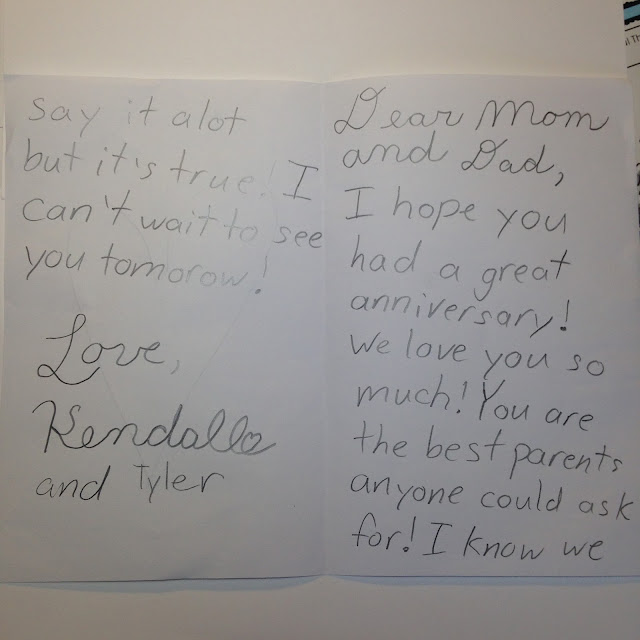 Dear Mom
and Dad,
I hope you
had a great
anniversary!
We love you so
much! You are
the best parents
anyone could ask
for! I know we
say it alot
but it's true! I
can't wait to see
you tomorow!
Love,
Kendall
and Tyler